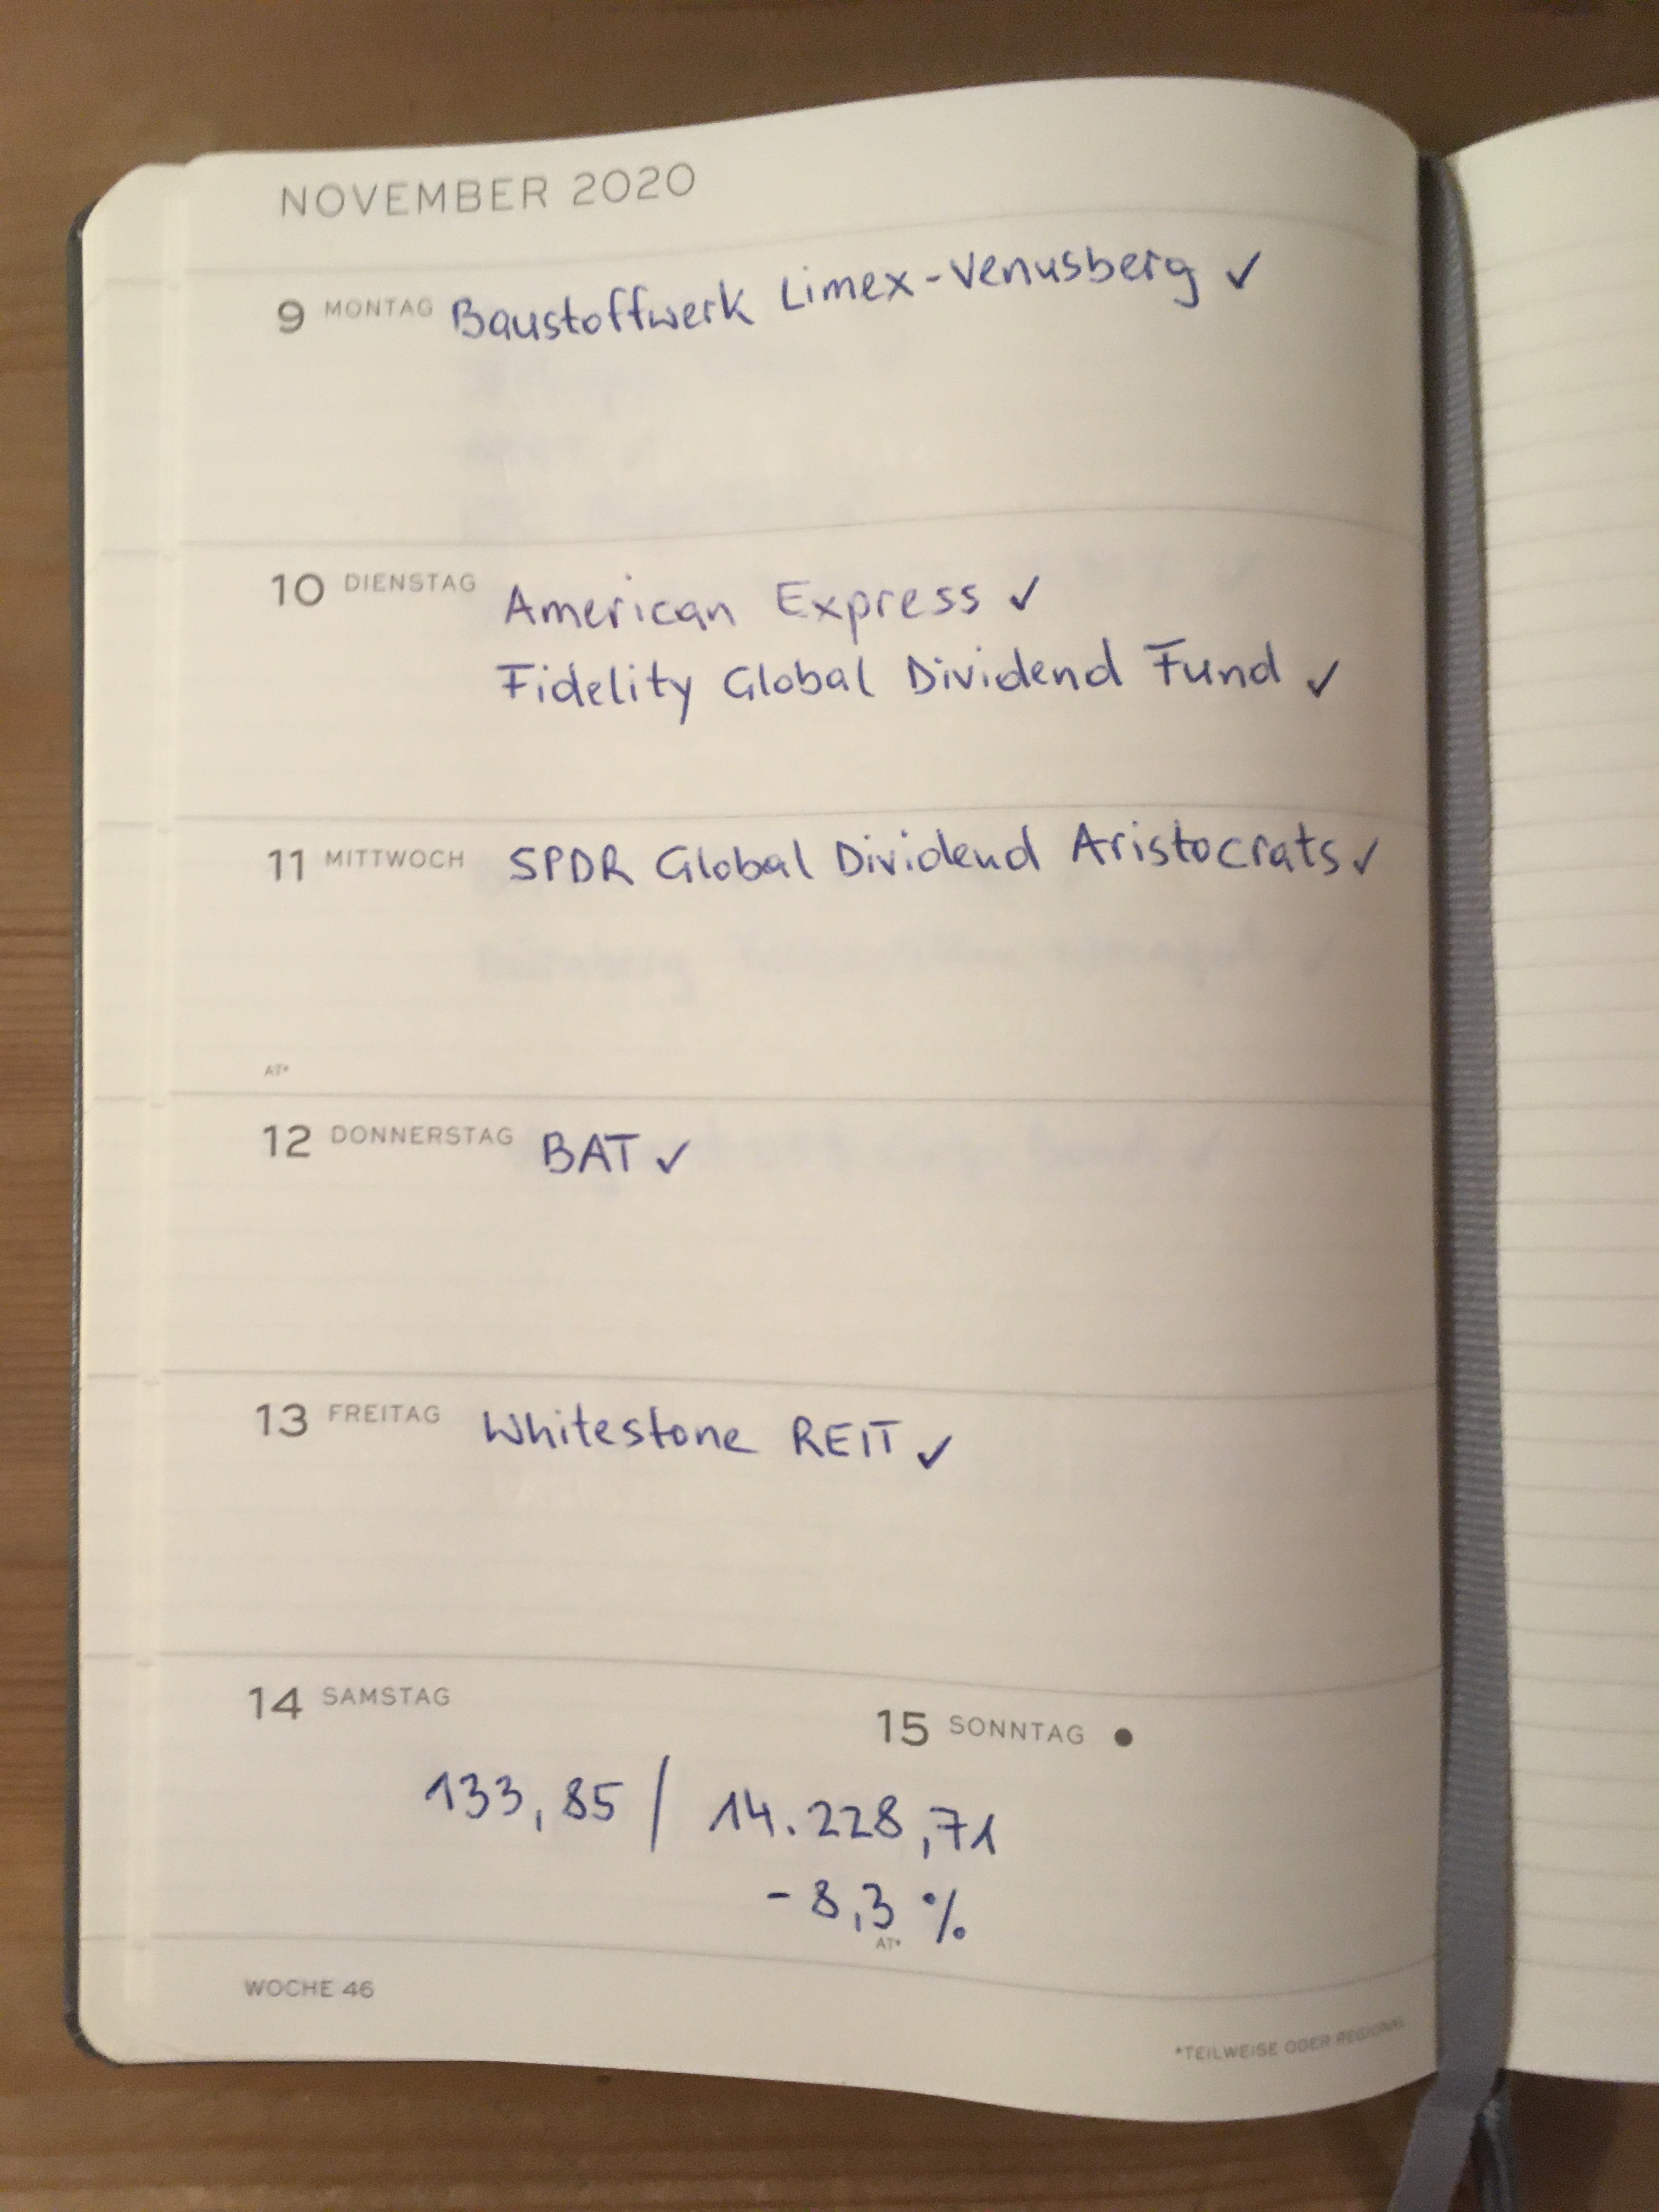 NOVEMBER 2020
9 MONTAG Baustoffwerk Limex-Venusberg ✓
10 DIENSTAG American Express ✓
Fidelity Global Dividend Fund ✓
11 MITTWOCH SPDR Global Dividend Aristocrats ✓
AT*
12 DONNERSTAG BAT ✓
13 FREITAG Whitestone REIT ✓
14 SAMSTAG
15 SONNTAG ●
133,85 / 14.228,71
- 8,3 %
AT*
WOCHE 46
*TEILWEISE ODER REGIONAL